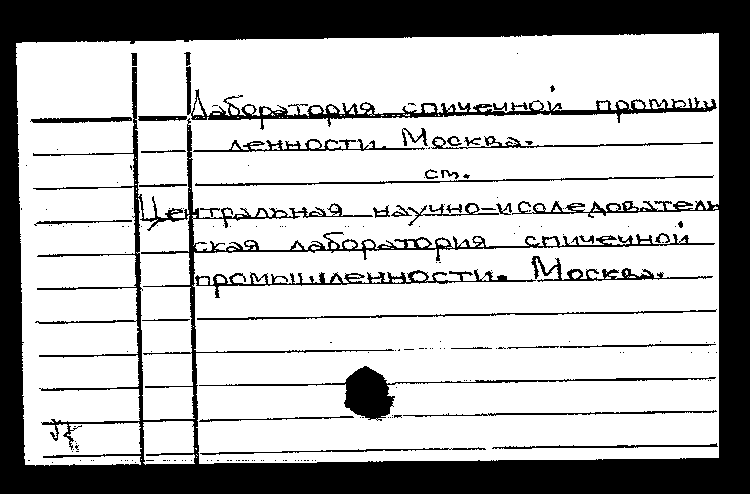 Лаборатория спичечной промыш
ленности. Москва.
см.
Центральная научно-исследователь
ская лаборатория спичечной
промышленности. Москва.